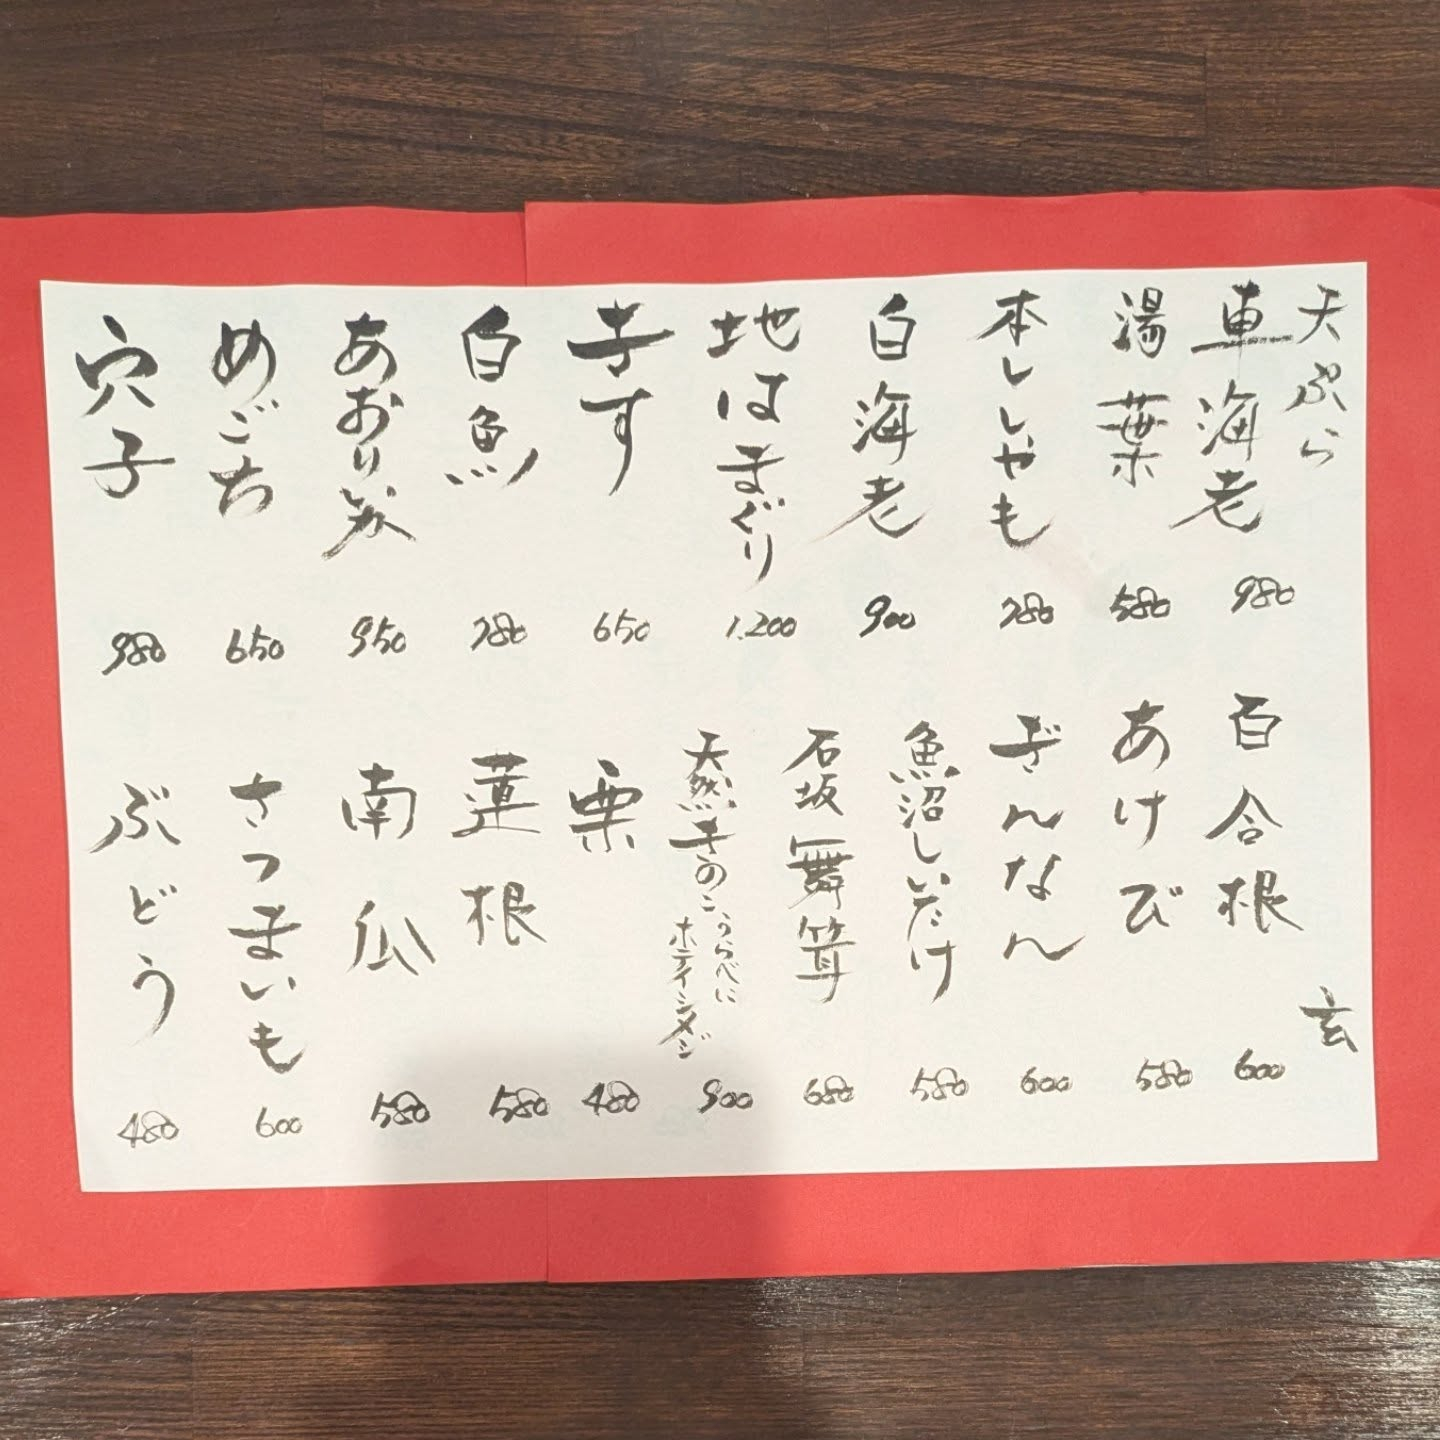 天ぷら
車海老 980
湯葉 580
本ししゃも 780
白海老 900
地はまぐり 1.200
きす 650
白魚 780
あおりいか 950
めごち 650
穴子 980
百合根 600
あけび 580
ぎんなん 600
魚沼しいたけ 580
石坂舞茸 680
天然きのこ うらべに
ホテイシメジ 900
栗 480
蓮根 580
南瓜 580
さつまいも 600
ぶどう 480
玄